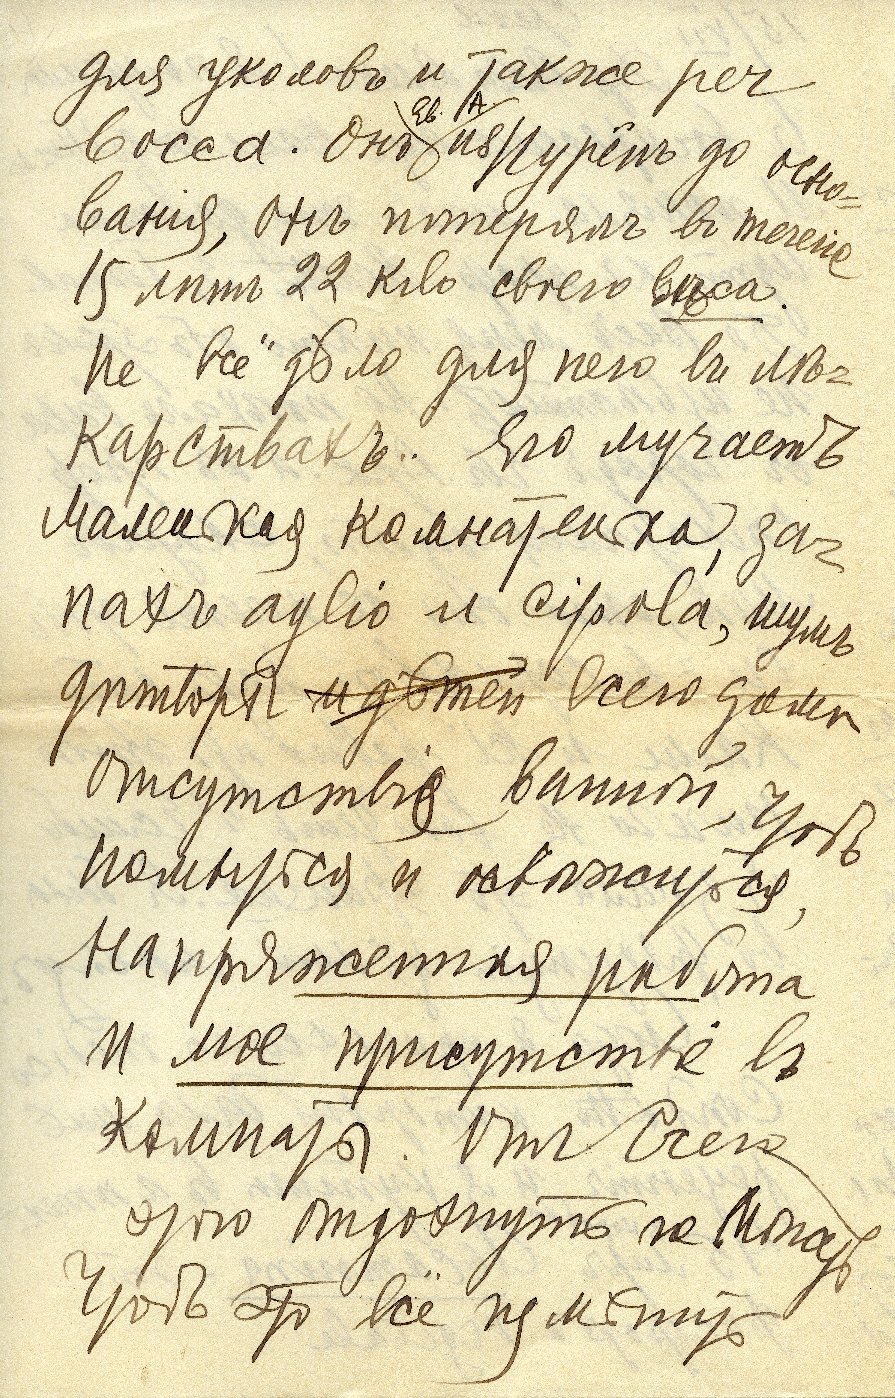 для уколовъ и также per
bocca. Онъ
вания, онъ потерялъ въ течение
15 лѣтъ 22 кило своего вѣса.
Не всё дѣло для него въ лѣ=
карствахъ.. Его мучаетъ
маленькая комнатенка, за-
пахъ aglio и cipola, шумъ
и дѣтей всего дома
отсутствiя ванной, чтобъ
помыться и освѣжиться,
напряженная работа
и мое присутствiе въ
комнатѣ. Отъ всего
этого отдохнуть не можетъ
Чтобъ это всё